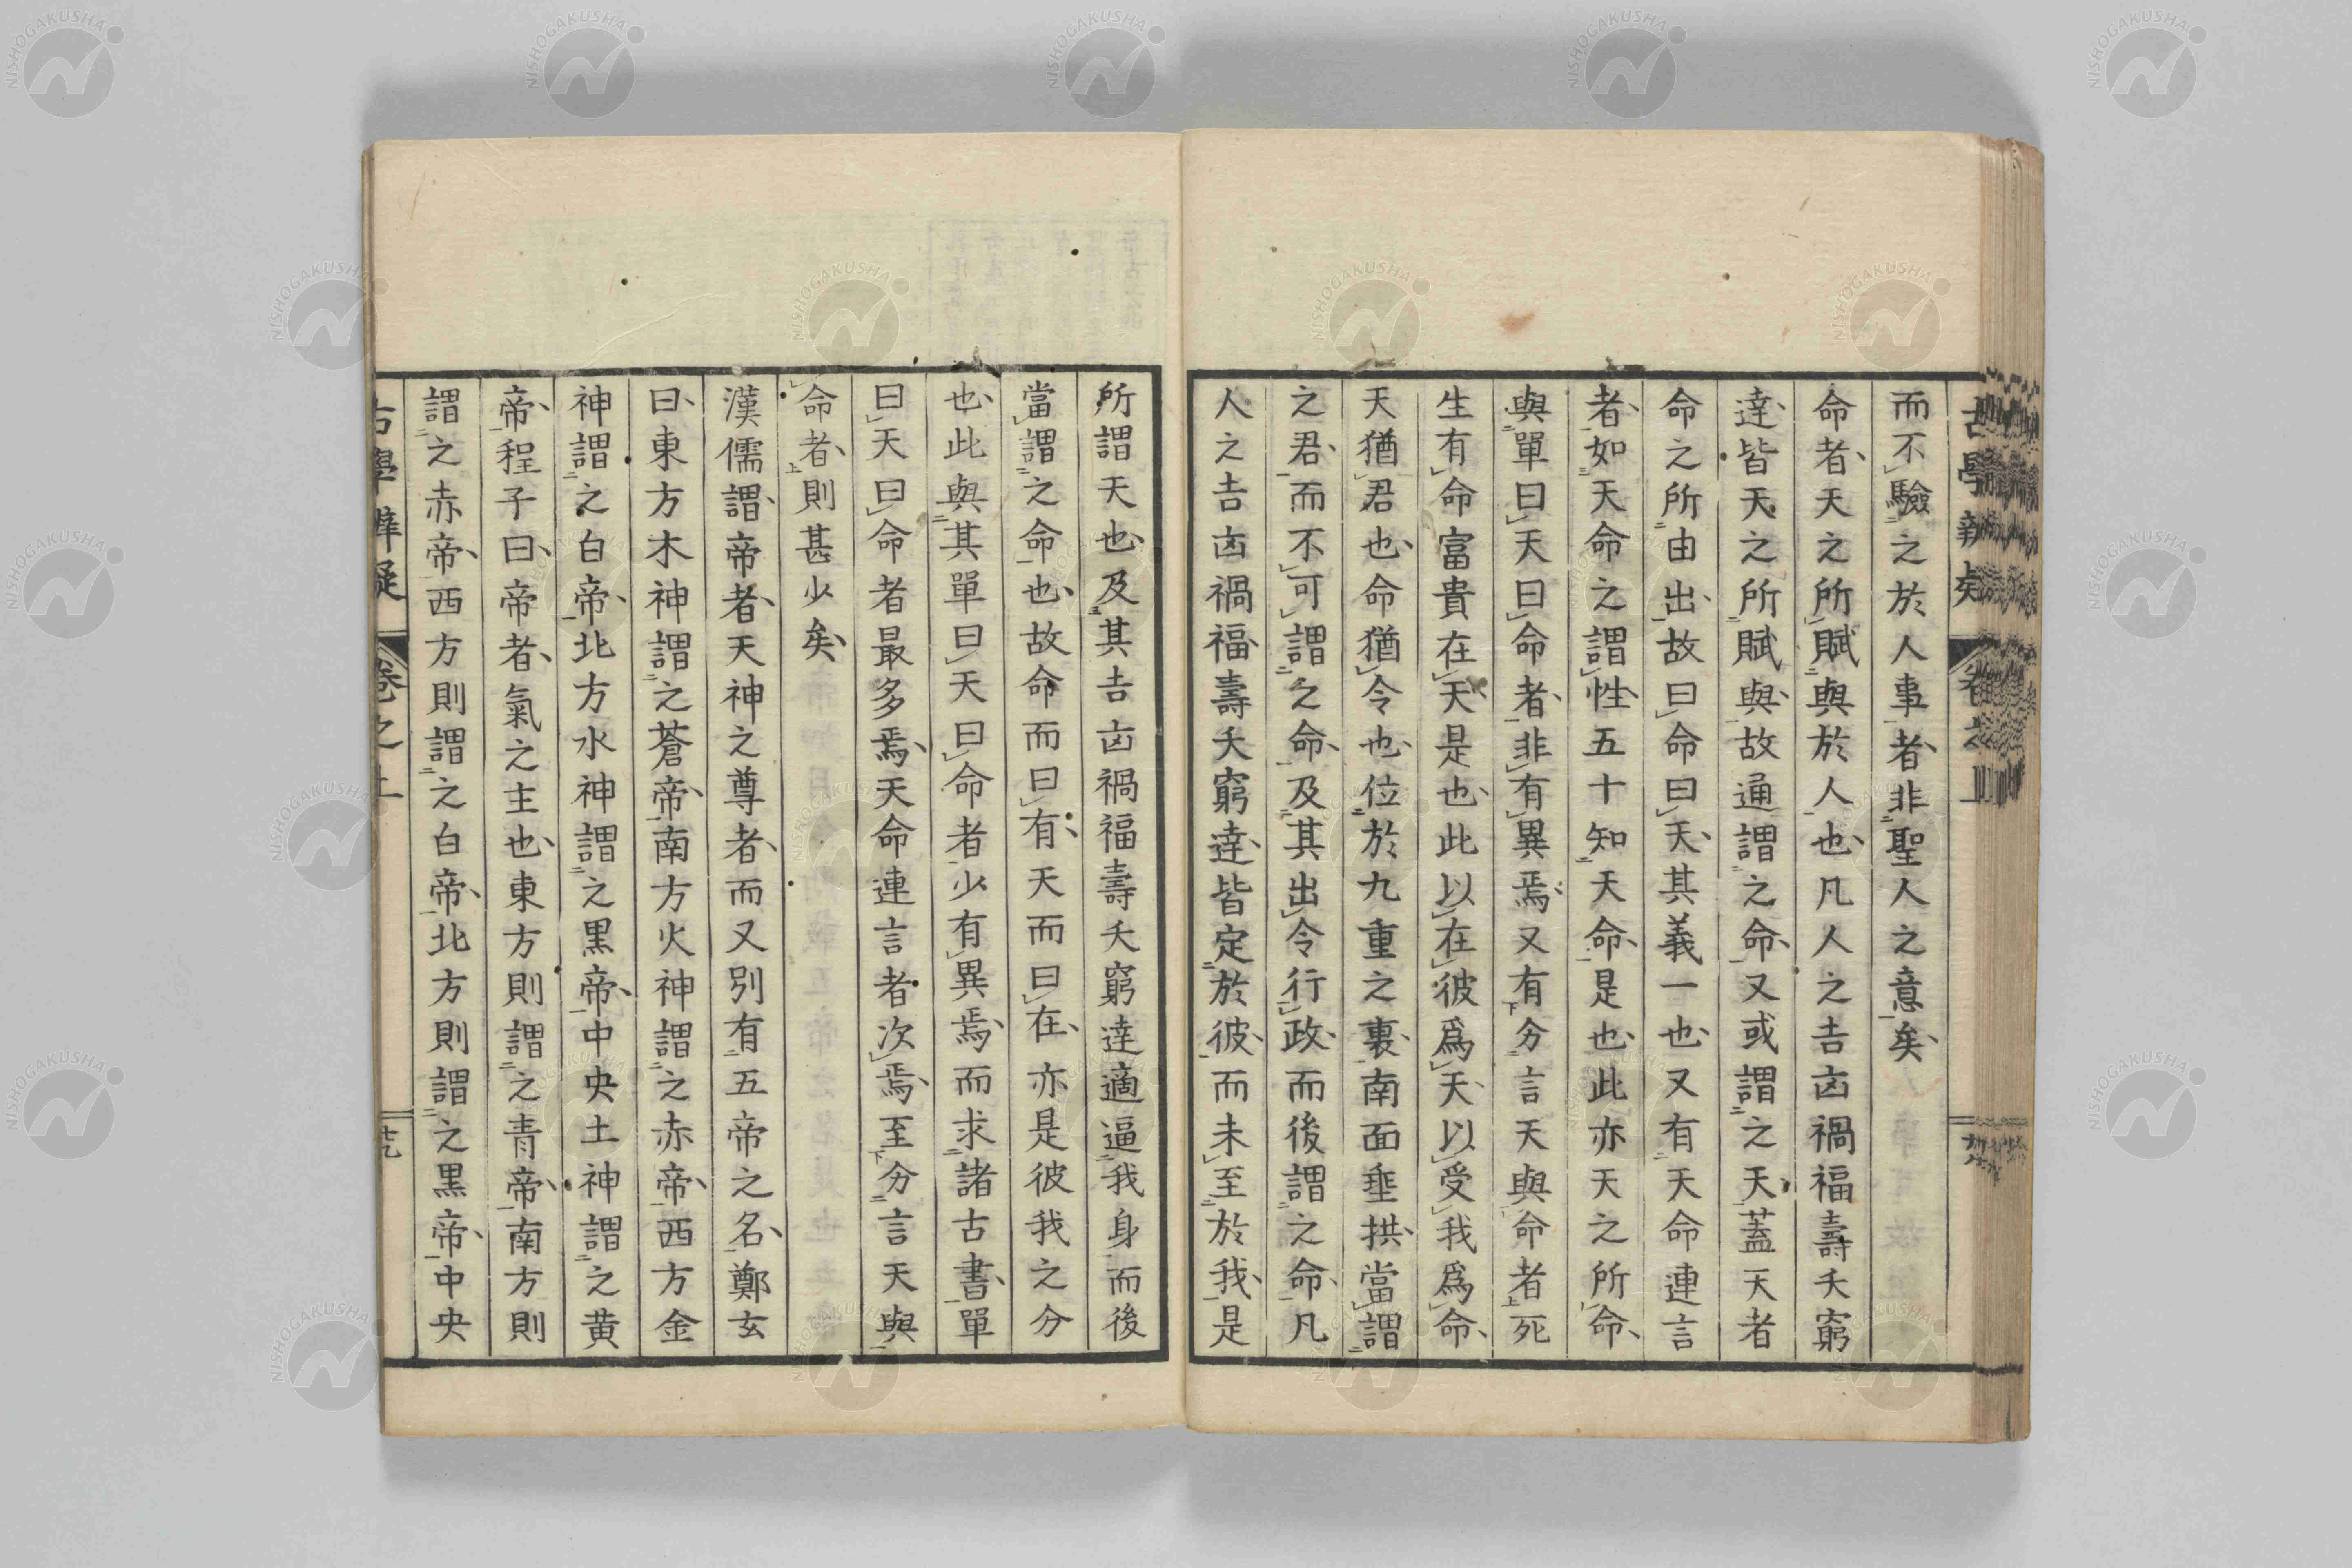 而不驗之於人事者非聖人之意矣
命者天之所賦與於人也凡人之吉凶禍福壽夭窮
達皆天之所賦與故通謂之命又或謂之天蓋天者
命之所由出故曰命曰天其義一也又有天命連言
者如天命之謂性五十知天命是也此亦天之所命
與單曰天曰命者非有異焉又有分言天與命者死
生有命富貴在天是也此以在彼爲天以受我爲命
天猶君也命猶令也位於九重之裏南面垂拱當謂
之君而不可謂之命及其出令行政而後謂之命凡
人之吉凶禍福壽夭窮達皆定於彼而未至於我是
所謂天也及其吉凶禍福壽夭窮達適逼我身而後
當謂之命也故命而曰有天而曰在亦是彼我之分
也此與其單曰天曰命者少有異焉而求諸古書單
曰天曰命者最多焉天命連言者次焉至分言天與
命者則甚少矣
漢儒謂帝者天神之尊者而又別有五帝之名鄭玄
曰東方木神謂之蒼帝南方火神謂之赤帝西方金
神謂之白帝北方水神謂之黒帝中央土神謂之黄
帝程子曰帝者氣之主也東方則謂之青帝南方則
謂之赤帝西方則謂之白帝北方則謂之黒帝中央
古學辨疑 卷之上
NISHOGAKUSHA